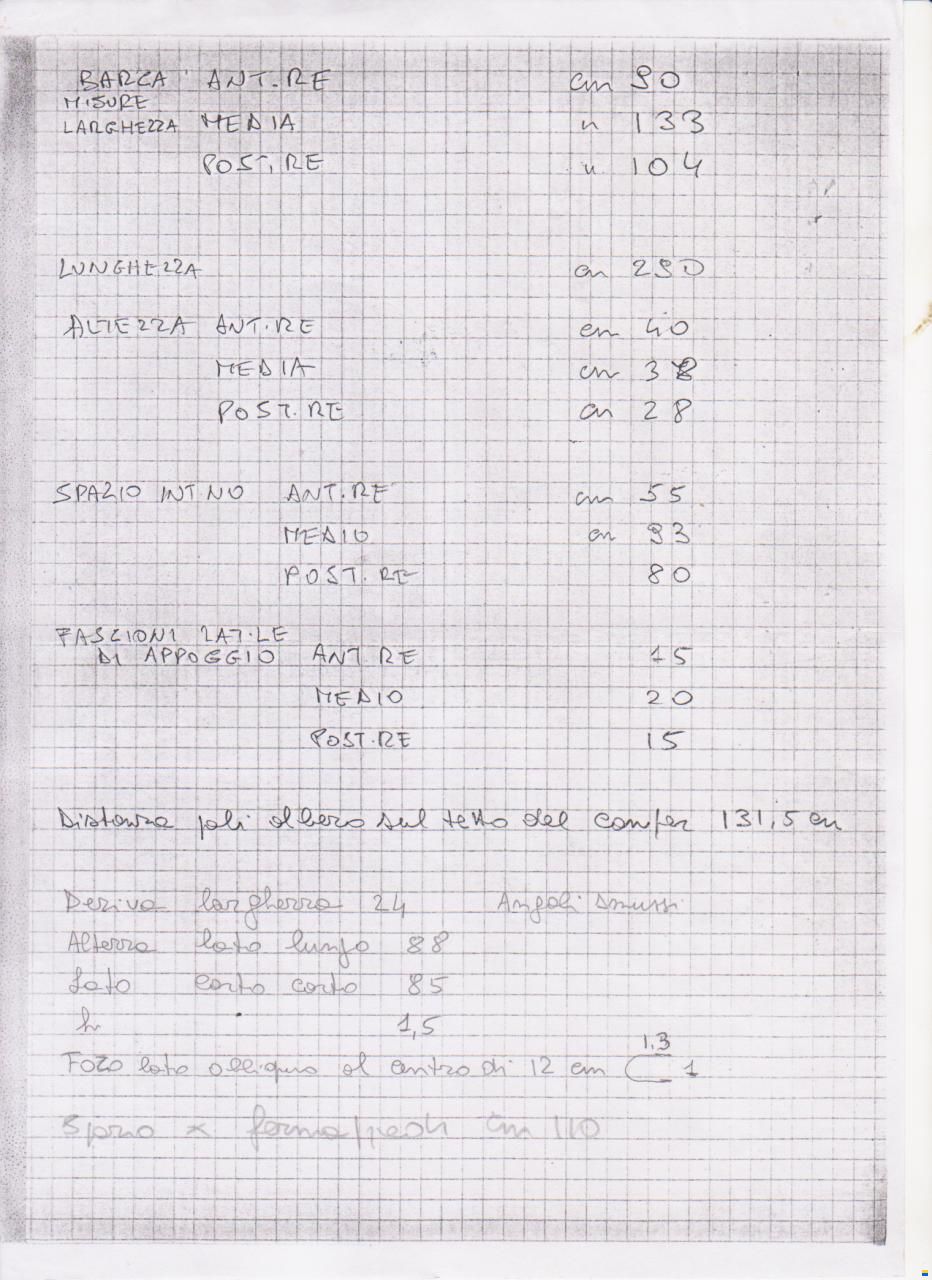 BARCA ANT.RE cm 90
MISURE
LARGHEZZA MEDIA " 133
POST.RE " 104
LUNGHEZZA cm 290
ALTEZZA ANT.RE cm 40
MEDIA cm 38
POST.RE cm 28
SPAZIO INT.NO ANT.RE cm 55
MEDIO cm 93
POST.RE 80
FASCIONI LAT.LE
DI APPOGGIO ANT.RE 15
MEDIO 20
POST.RE 15
Distanza pali albero sul tetto del camper 131,5 cm
Deriva larghezza 24 Angoli smussi
Altezza lato lungo 88
Lato corto corto 85
h 1,5
1.3
Foro lato obliquo al centro di 12 cm 1
Spazio x fermapiedi cm 110